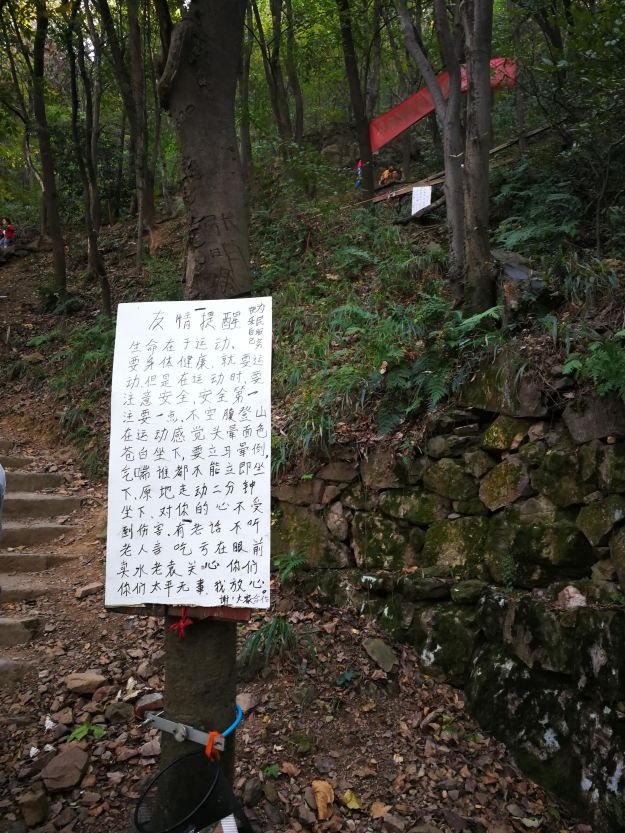 友情提醒
为民服务
快乐自己
生命在于运动.
要身体健康.就要运
动.但是在运动时.要
注意安全.安全第一
注要一点.不空腹登山
在运动感觉头晕面色
苍白坐下.要立耳晕倒,
气喘谁都不能立即坐
下.原地走动二分钟
坐下.对你的心不受
到伤害.有老话不听
老人言吃亏在眼前
卖水老袁关心你们
你们太平无事.我放心
谢谢大家合作